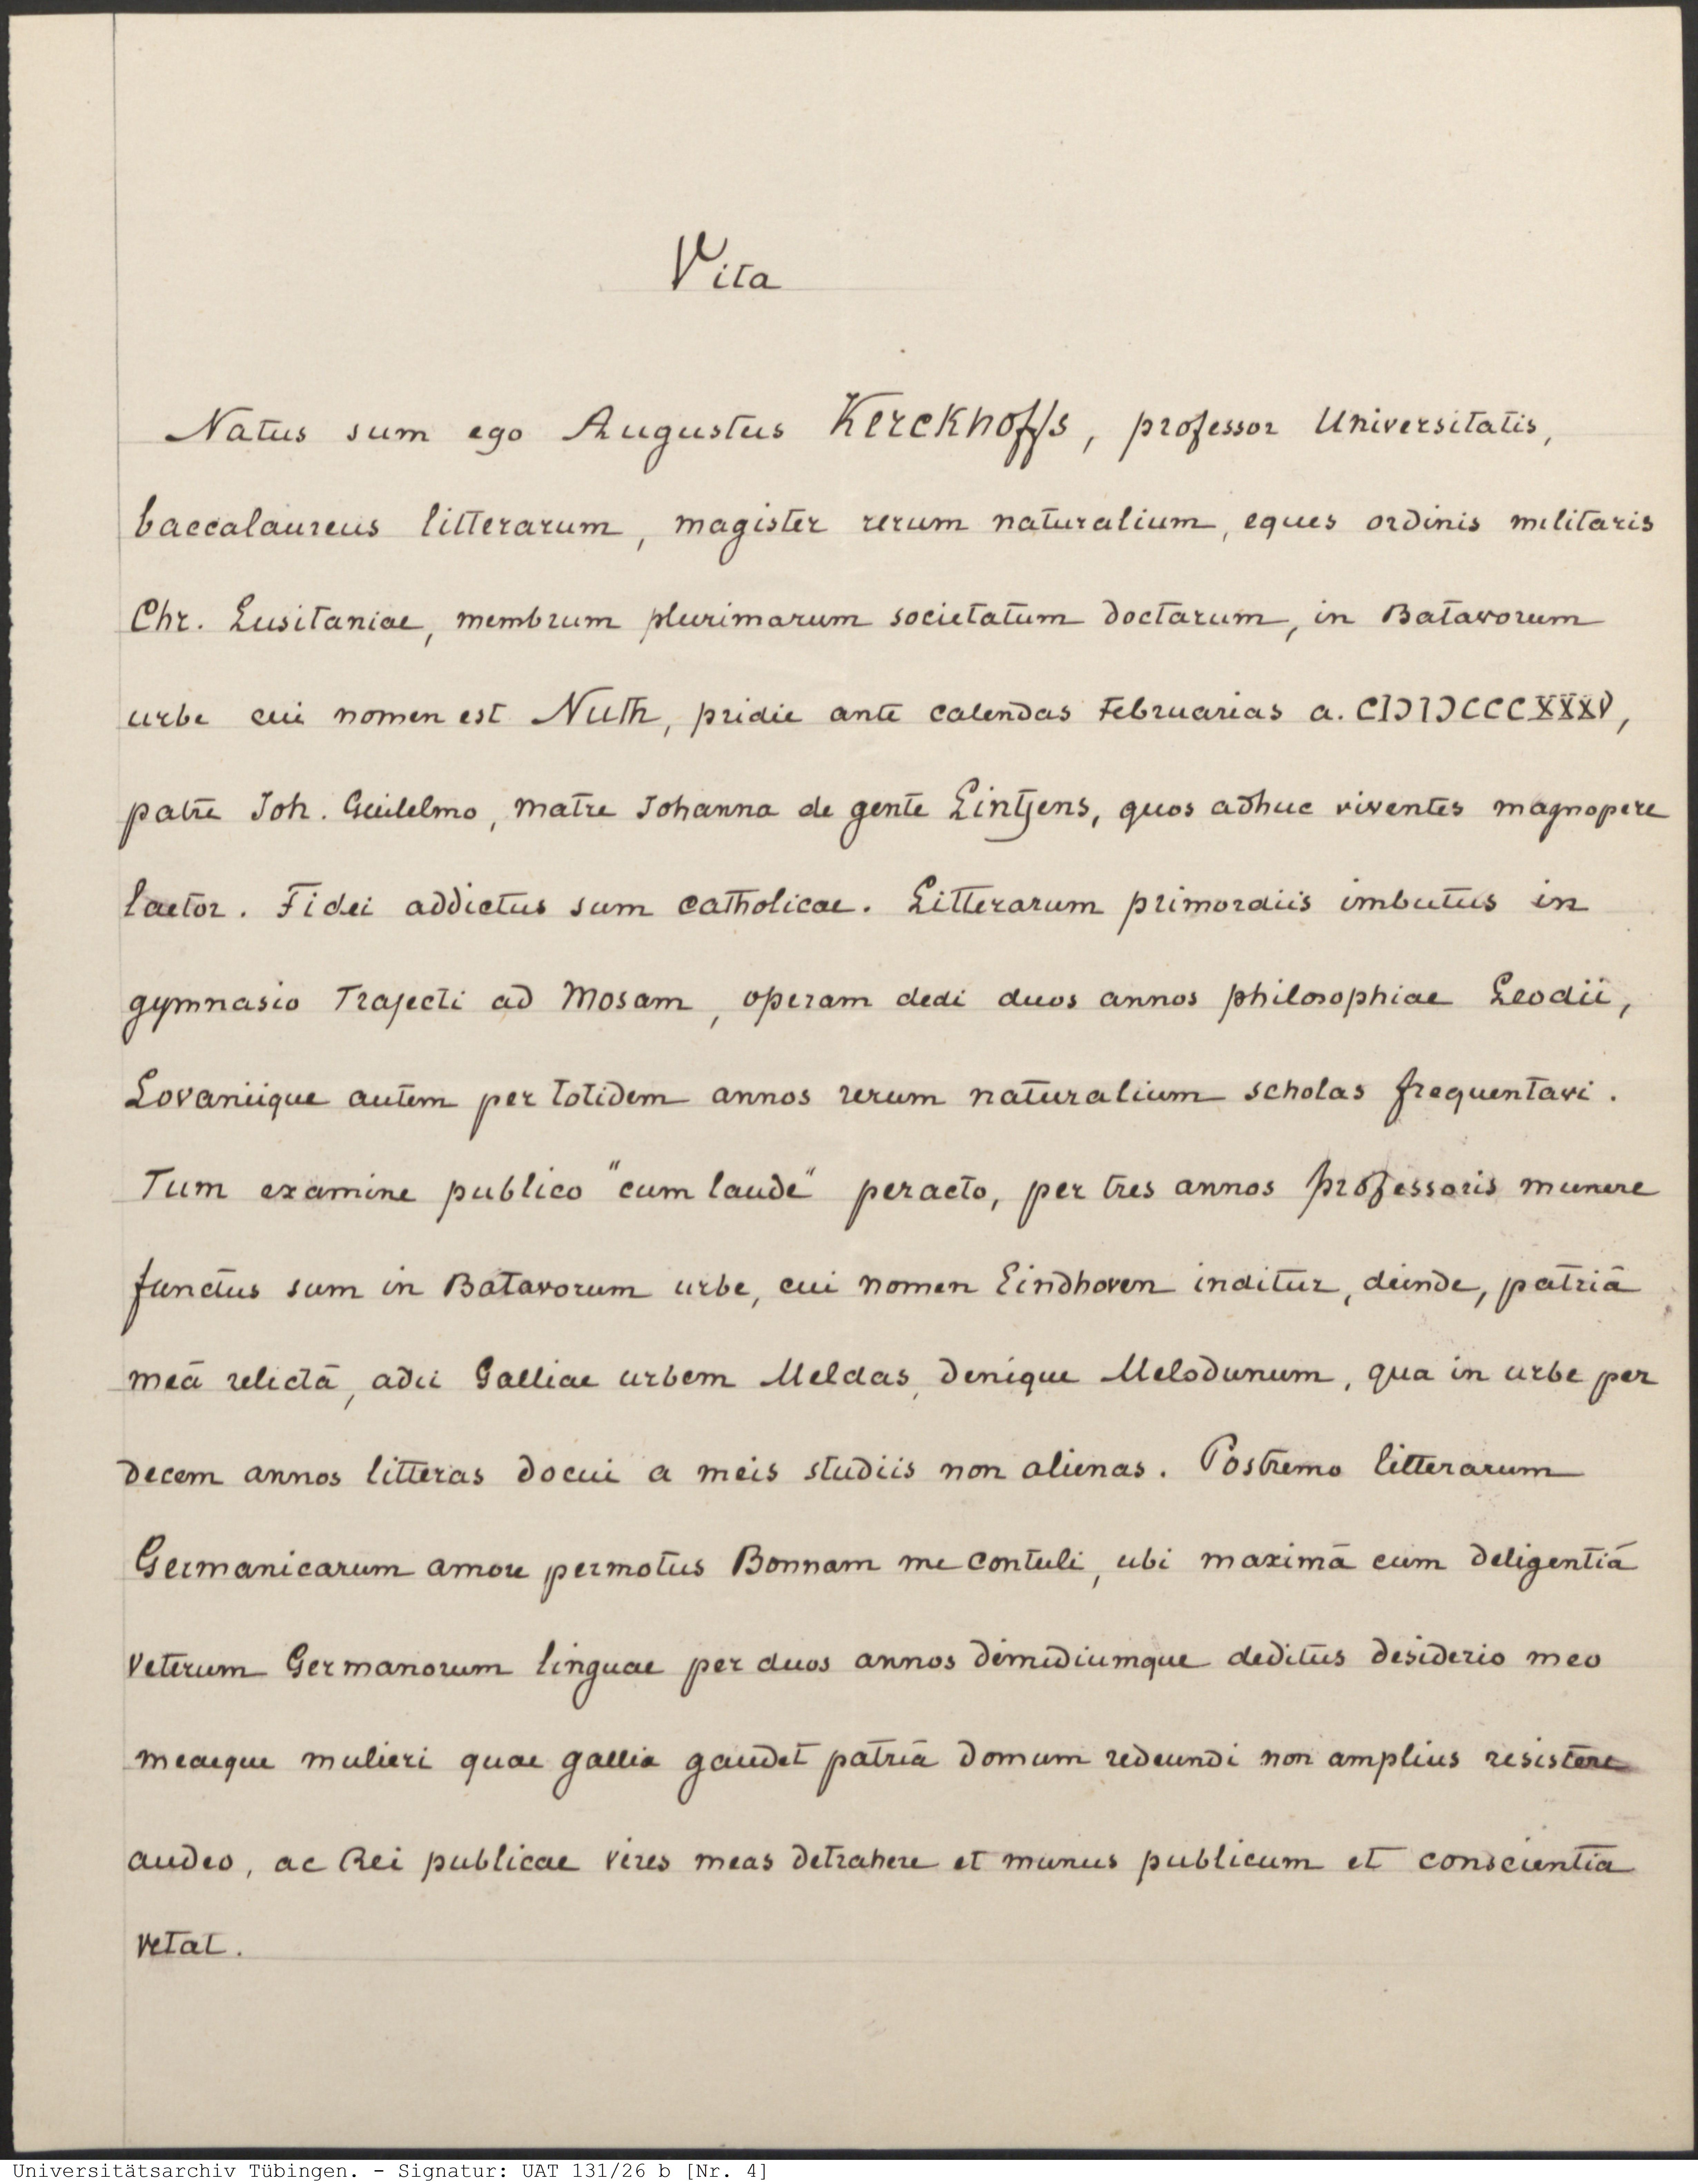 Vita
Natus sum ego Augustus Kerckhoffs, professor Universitatis,
baccalaureus litterarum, magister rerum naturalium, eques ordinis militaris
Chr. Lusitaniae, membrum plurimarum societatum doctarum, in Batavorum
urbe cui nomen est Nuth, pridie ante calendas Februarias a. CIƆIƆCCCXXXV,
patre Joh. Guilelmo, matre Johanna de gente Lintjens, quos adhuc viventes magnopere
laetor. Fidei addictus sum catholicae. Litterarum primordiis imbutus in
gymnasio Trajecti ad Mosam, operam dedi duos annos philosophiae Leodii,
Lovaniique autem per totidem annos rerum naturalium scholas frequentavi.
Tum examine publico "cum laude" peracto, per tres annos professoris munere
functus sum in Batavorum urbe, cui nomen Eindhoven inditur, deinde, patriā
meā relictā, adii Galliae urbem Meldas, denique Melodunum, qua in urbe per
decem annos litteras docui a meis studiis non alienas. Postremo litterarum
Germanicarum amore permotus Bonnam me contuli, ubi maximā cum deligentiā
veterum Germanorum linguae per duos annos dimidiumque deditus desiderio meo
meaeque mulieri quae gallia gaudet patriā domum redeundi non amplius resistere
audeo, ac Rei publicae vires meas detrahere et munus publicum et conscientia
vetat.
Universitätsarchiv Tübingen. - Signatur: UAT 131/26 b [Nr. 4]